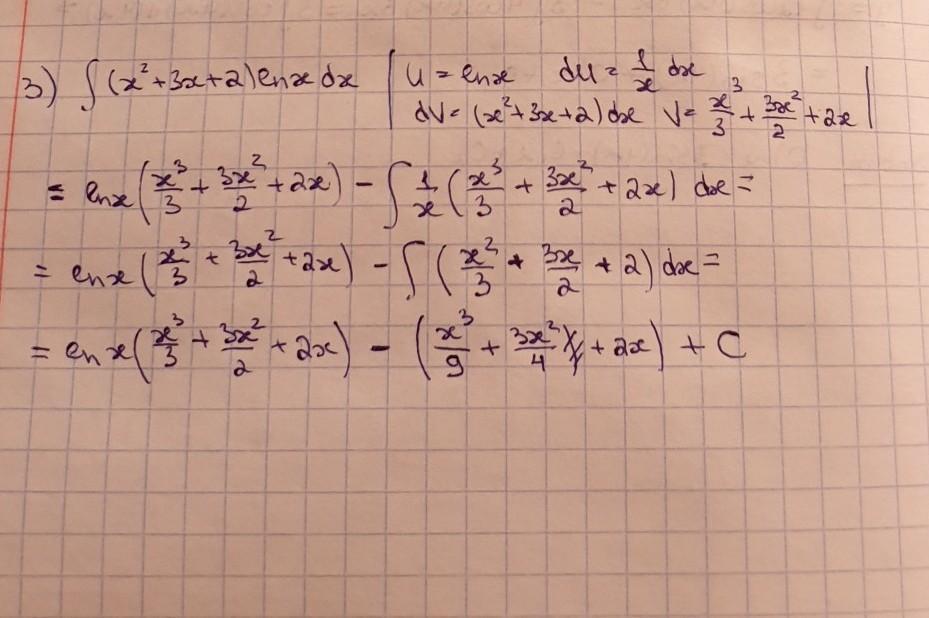 3) ∫(x²+3x+2)lnx dx | u = lnx du = 1/x dx
dV = (x²+3x+2)dx V = x³/3 + 3x²/2 + 2x |
= lnx(x³/3 + 3x²/2 + 2x) - ∫ 1/x (x³/3 + 3x²/2 + 2x) dx =
= lnx(x³/3 + 3x²/2 + 2x) - ∫ (x²/3 + 3x/2 + 2) dx =
= lnx(x³/3 + 3x²/2 + 2x) - (x³/9 + 3x²/4 + 2x) + C